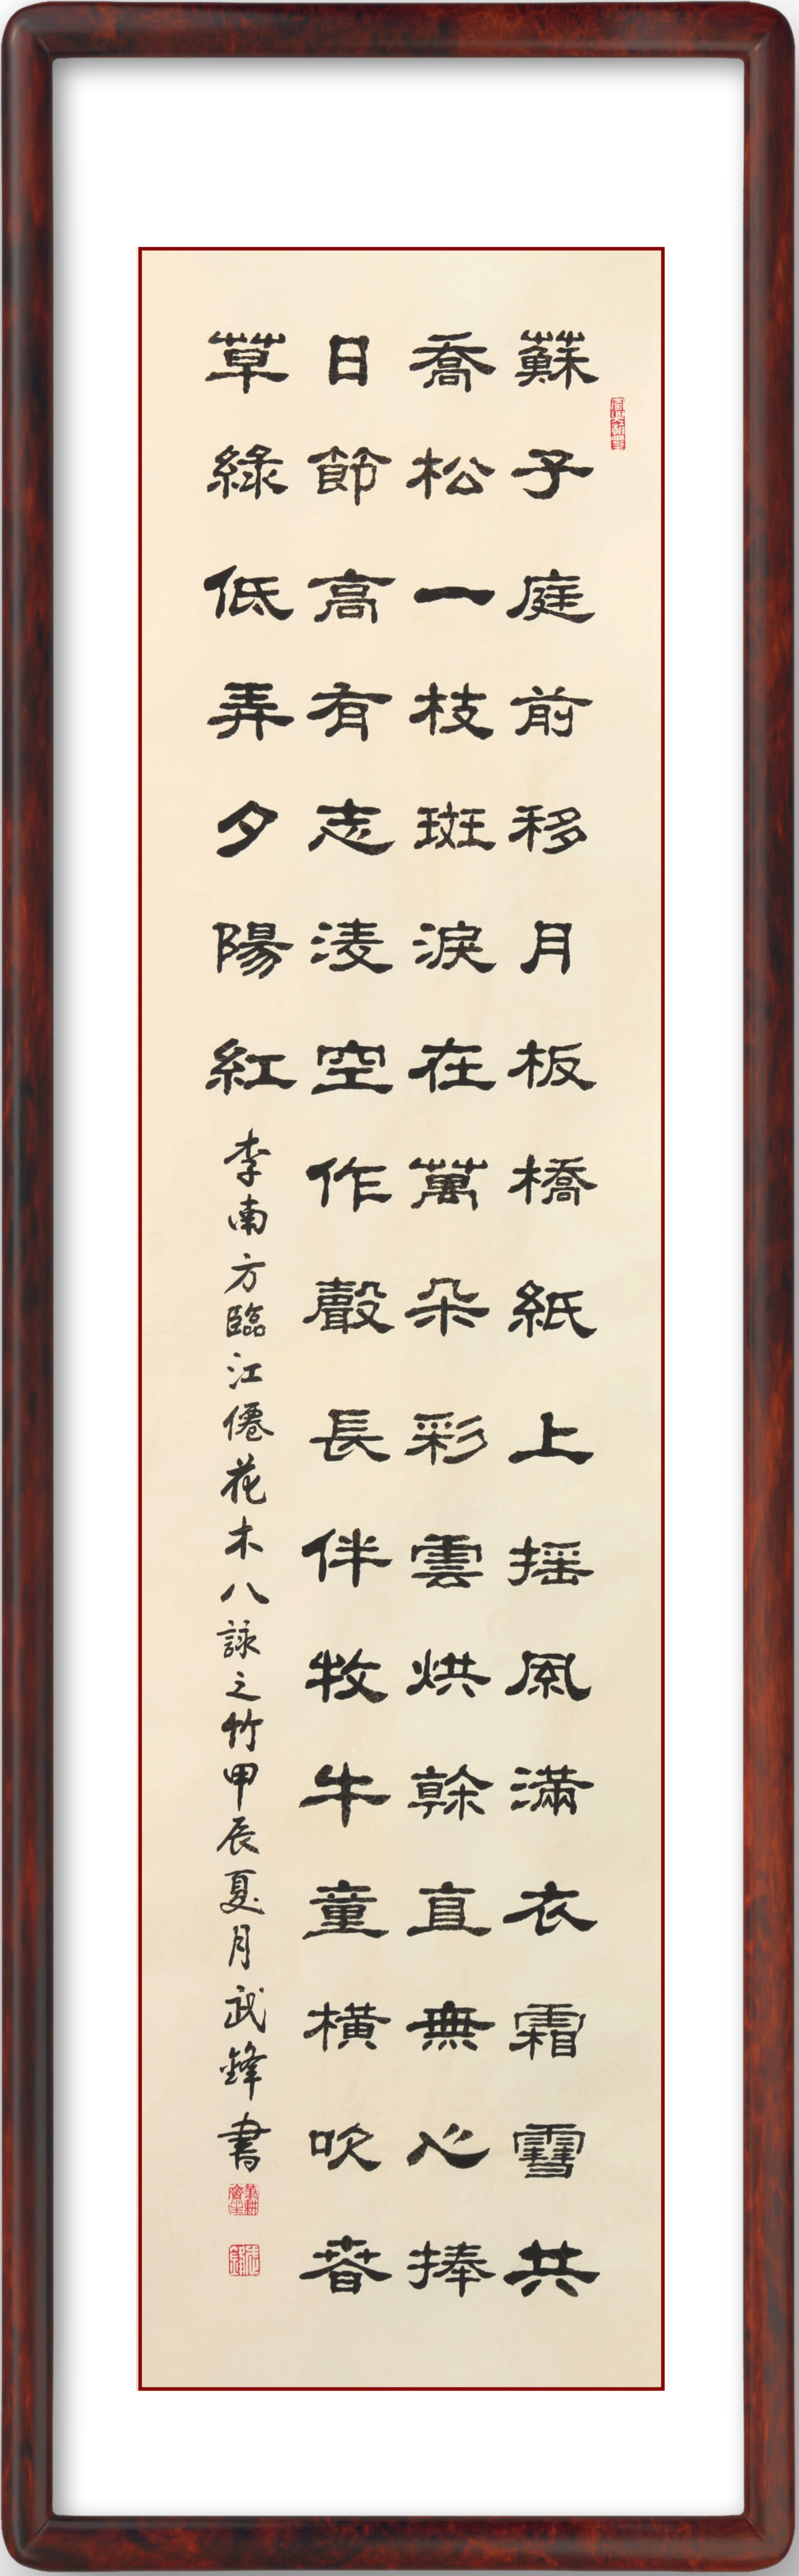 蘇子庭前移月板橋紙上摇風滿衣霜雪共
喬松一枝斑淚在萬朵彩雲烘榦直無心捧
日節高有志淩空作聲長伴牧牛童横吹春
草綠低弄夕陽紅
李南方臨江僊花木八詠之竹甲辰夏月武鋒書